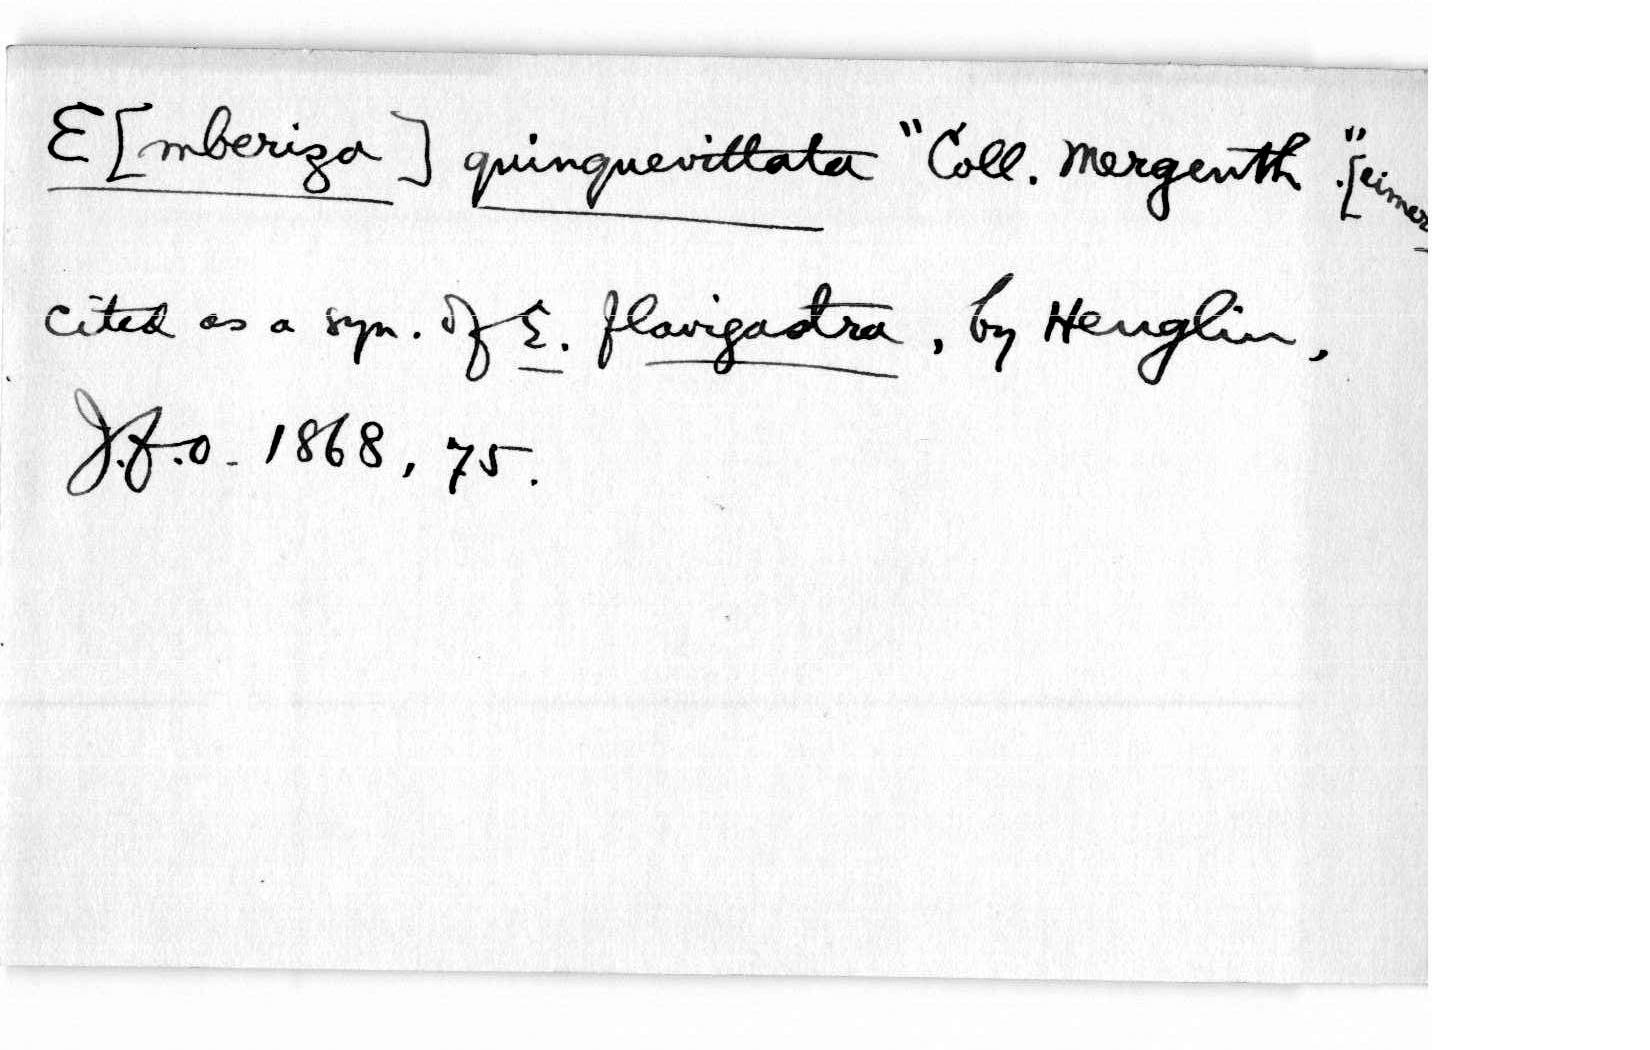 E[mberiza] quinquevittata "Coll. Mergenth." [eimer
cited as a syn. of E. flavigastra, by Heuglin,
J.f.O. 1868, 75.